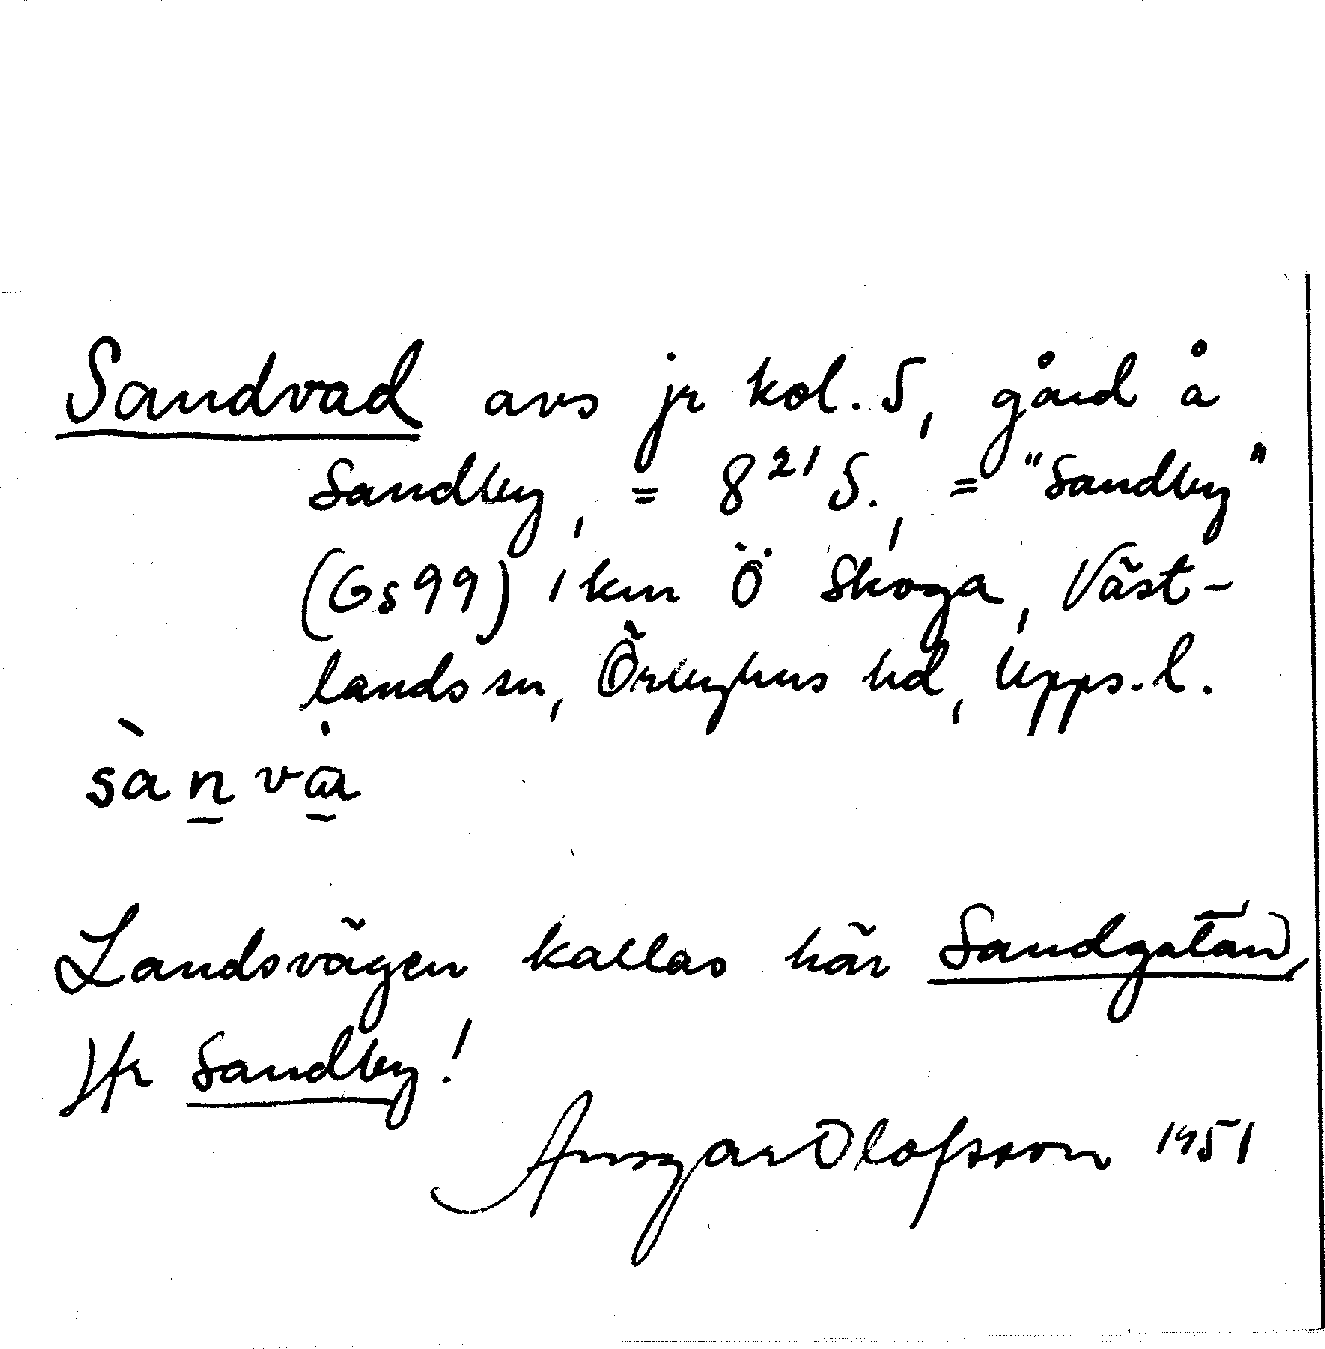 Sandvad avs jr kol. S, gård å
Sandby, = 8²¹ S., = "Sandby"
(Gs 99) 1 km Ö Skoga, Väst-
lands sn, Örbyhus hd, Upps. l.
Landsvägen kallas här Sandgatan,
Jfr Sandby!
Ansgar Olofsson 1951